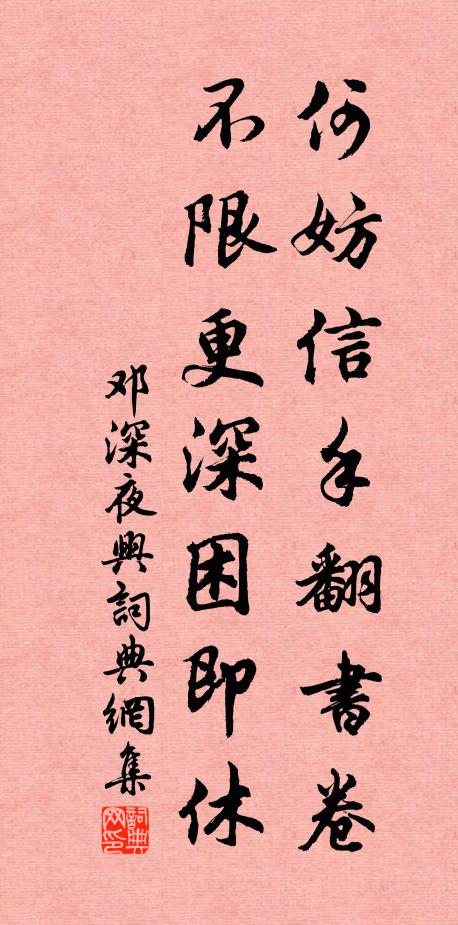 何妨信手翻書卷
不限更深困即休
邓深夜興詞典網集
詞典网印